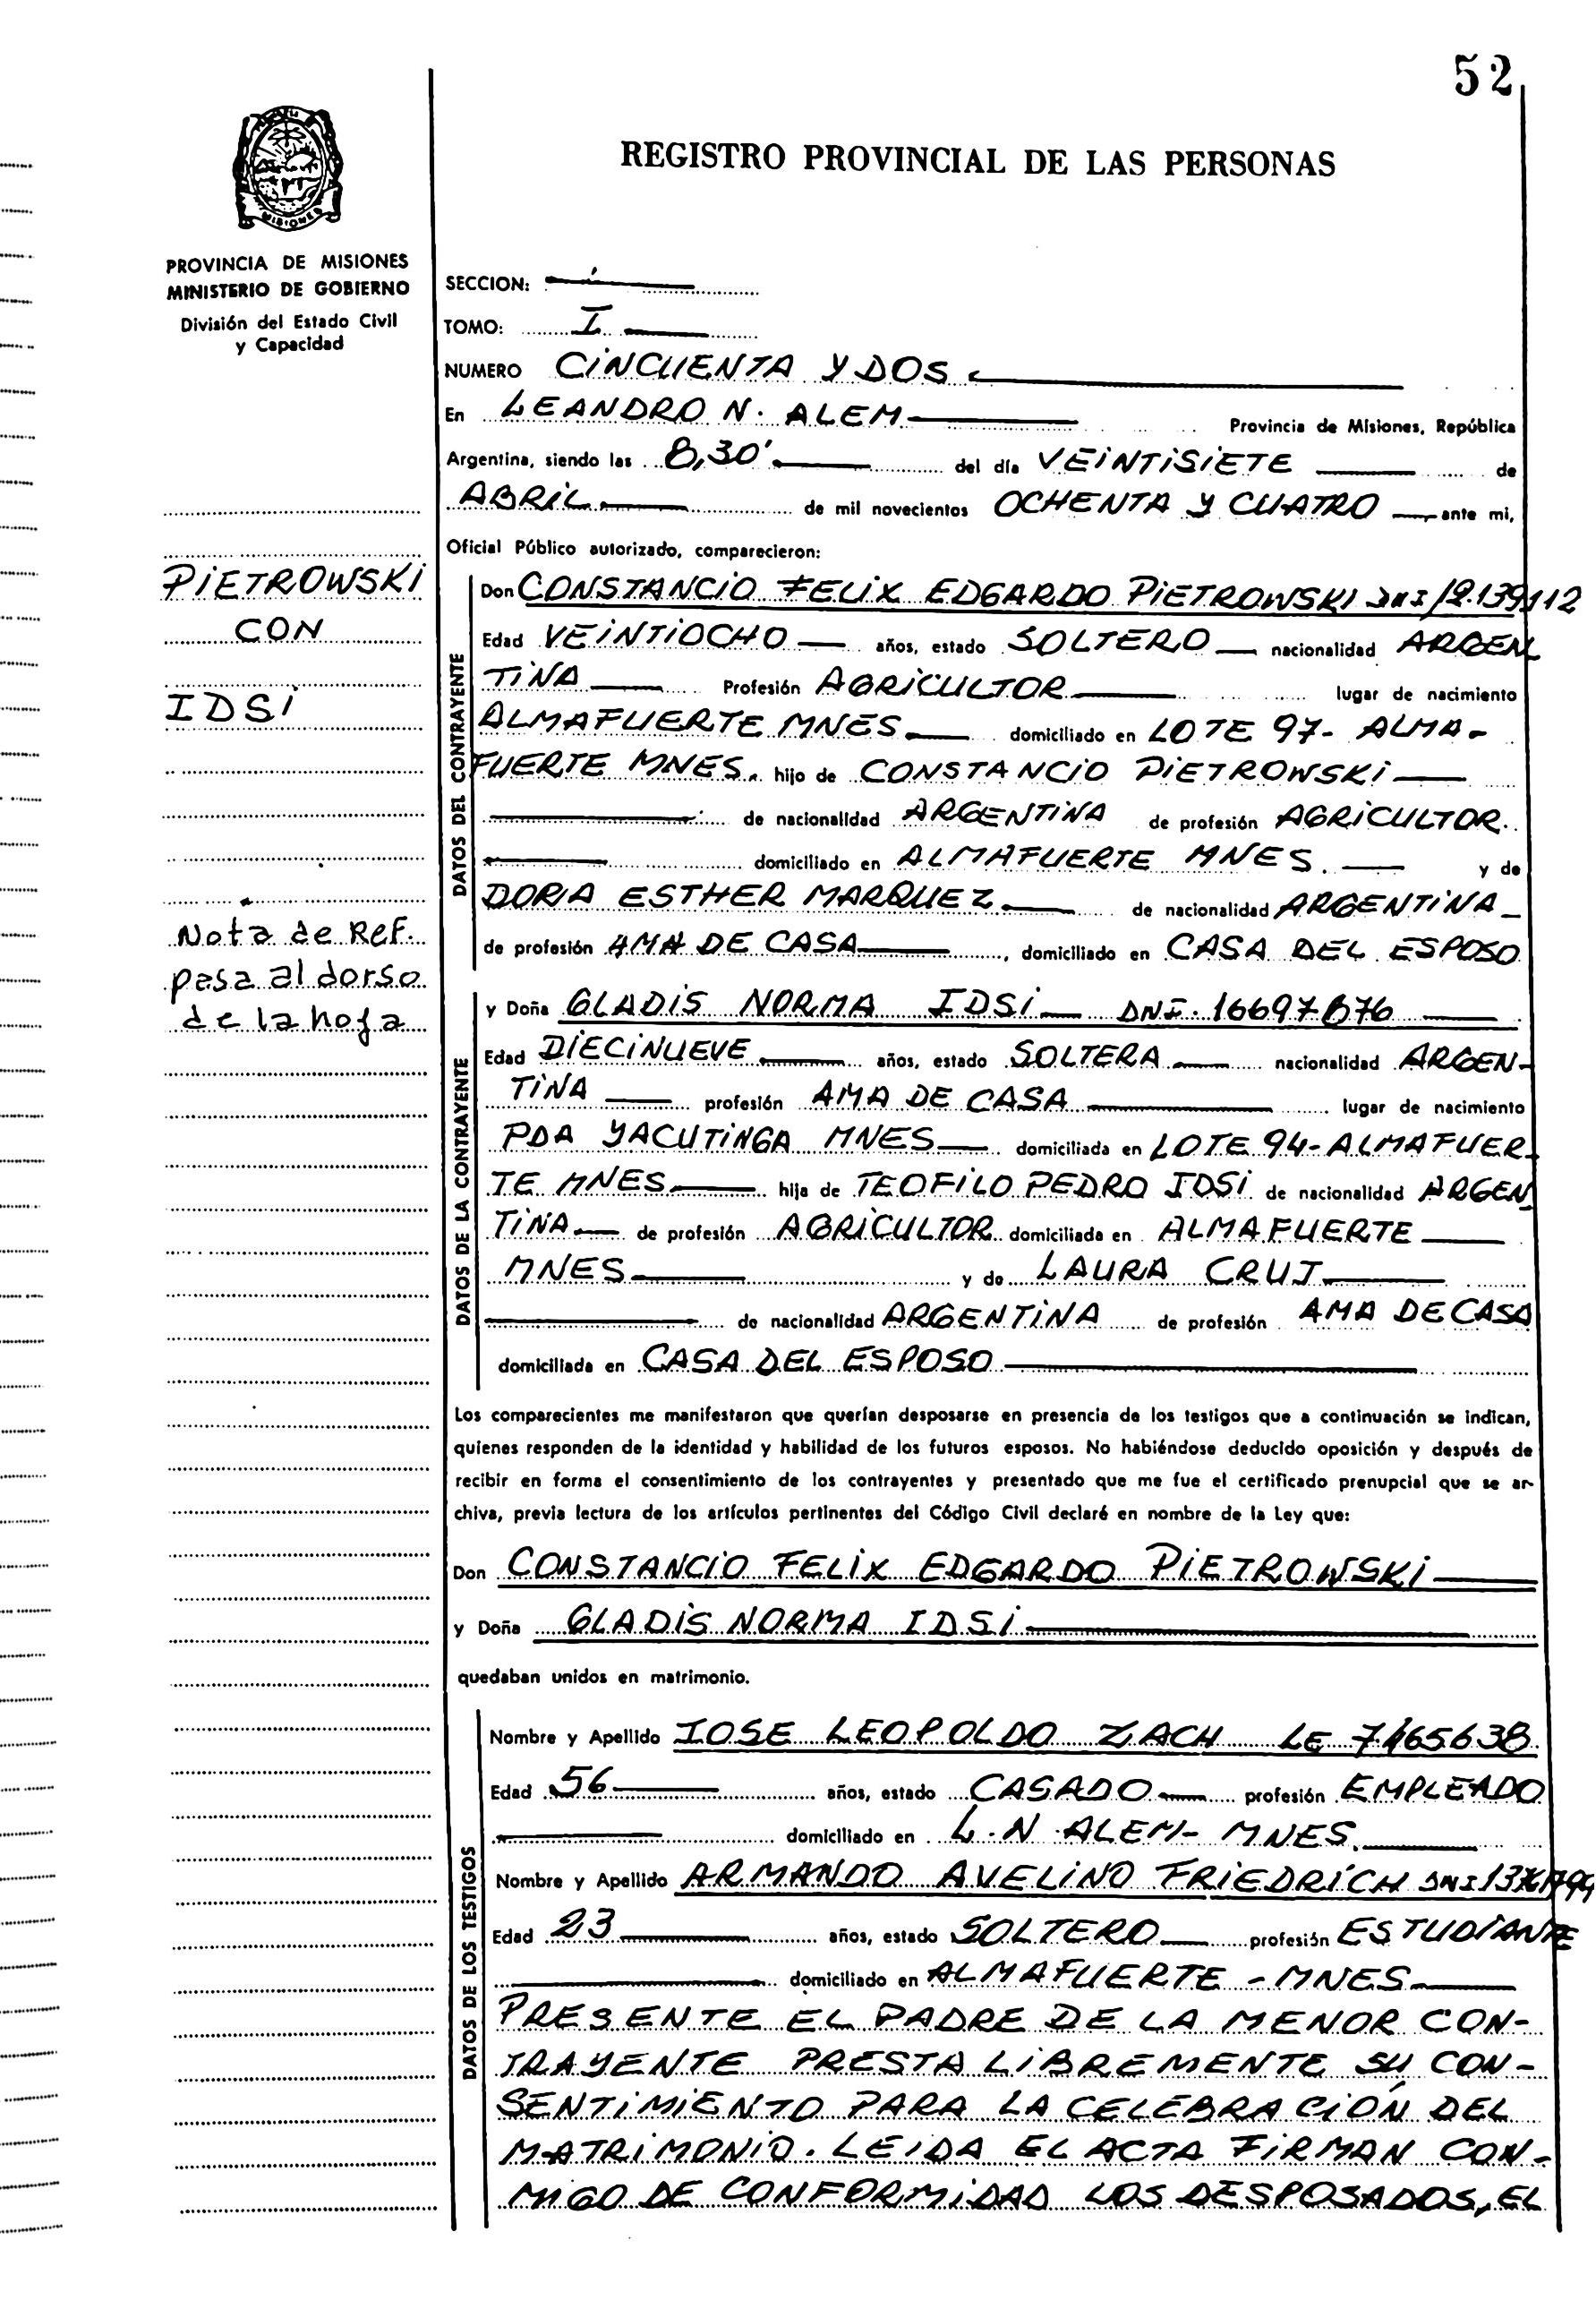 52
REGISTRO PROVINCIAL DE LAS PERSONAS
MISIONES
PROVINCIA DE MISIONES
MINISTERIO DE GOBIERNO
División del Estado Civil
y Capacidad
PIETROWSKI
CON
IDSI
Nota de Ref.
pasa al dorso
de la hoja
SECCION:
TOMO: I
NUMERO CINCUENTA Y DOS
En LEANDRO N. ALEM Provincia de Misiones, República
Argentina, siendo las 8,30' del día VEINTISIETE de
ABRIL de mil novecientos OCHENTA Y CUATRO ante mi,
Oficial Público autorizado, comparecieron:
DATOS DEL CONTRAYENTE
Don CONSTANCIO FELIX EDGARDO PIETROWSKI DNI 12.139112
Edad VEINTIOCHO años, estado SOLTERO nacionalidad ARGEN
TINA Profesión AGRICULTOR lugar de nacimiento
ALMAFUERTE MNES domiciliado en LOTE 97- ALMA-
FUERTE MNES. hijo de CONSTANCIO PIETROWSKI
de nacionalidad ARGENTINA de profesión AGRICULTOR
domiciliado en ALMAFUERTE MNES. y de
DORIA ESTHER MARQUEZ de nacionalidad ARGENTINA
de profesión AMA DE CASA, domiciliado en CASA DEL ESPOSO
DATOS DE LA CONTRAYENTE
y Doña GLADIS NORMA IDSI DNI. 16697876
Edad DIECINUEVE años, estado SOLTERA nacionalidad ARGEN-
TINA profesión AMA DE CASA lugar de nacimiento
PDA YACUTINGA MNES domiciliada en LOTE 94-ALMAFUER-
TE MNES hija de TEOFILO PEDRO IDSI de nacionalidad ARGEN
TINA de profesión AGRICULTOR domiciliada en ALMAFUERTE
MNES y de LAURA CRUJ
de nacionalidad ARGENTINA de profesión AMA DE CASA
domiciliada en CASA DEL ESPOSO
Los comparecientes me manifestaron que querían desposarse en presencia de los testigos que a continuación se indican,
quienes responden de la identidad y habilidad de los futuros esposos. No habiéndose deducido oposición y después de
recibir en forma el consentimiento de los contrayentes y presentado que me fue el certificado prenupcial que se ar-
chiva, previa lectura de los artículos pertinentes del Código Civil declaré en nombre de la Ley que:
Don CONSTANCIO FELIX EDGARDO PIETROWSKI
y Doña GLADIS NORMA IDSI
quedaban unidos en matrimonio.
DATOS DE LOS TESTIGOS
Nombre y Apellido IOSE LEOPOLDO ZACH LE 7465638
Edad 56 años, estado CASADO profesión EMPLEADO
domiciliado en L.N ALEM- MNES.
Nombre y Apellido ARMANDO AVELINO FRIEDRICH DNI
Edad 23 años, estado SOLTERO profesión ESTUDIANTE
domiciliado en ALMAFUERTE - MNES
PRESENTE EL PADRE DE LA MENOR CON-
TRAYENTE PRESTA LIBREMENTE SU CON-
SENTIMIENTO PARA LA CELEBRACIÓN DEL
MATRIMONIO. LEIDA EL ACTA FIRMAN CON-
MIGO DE CONFORMIDAD LOS DESPOSADOS, EL